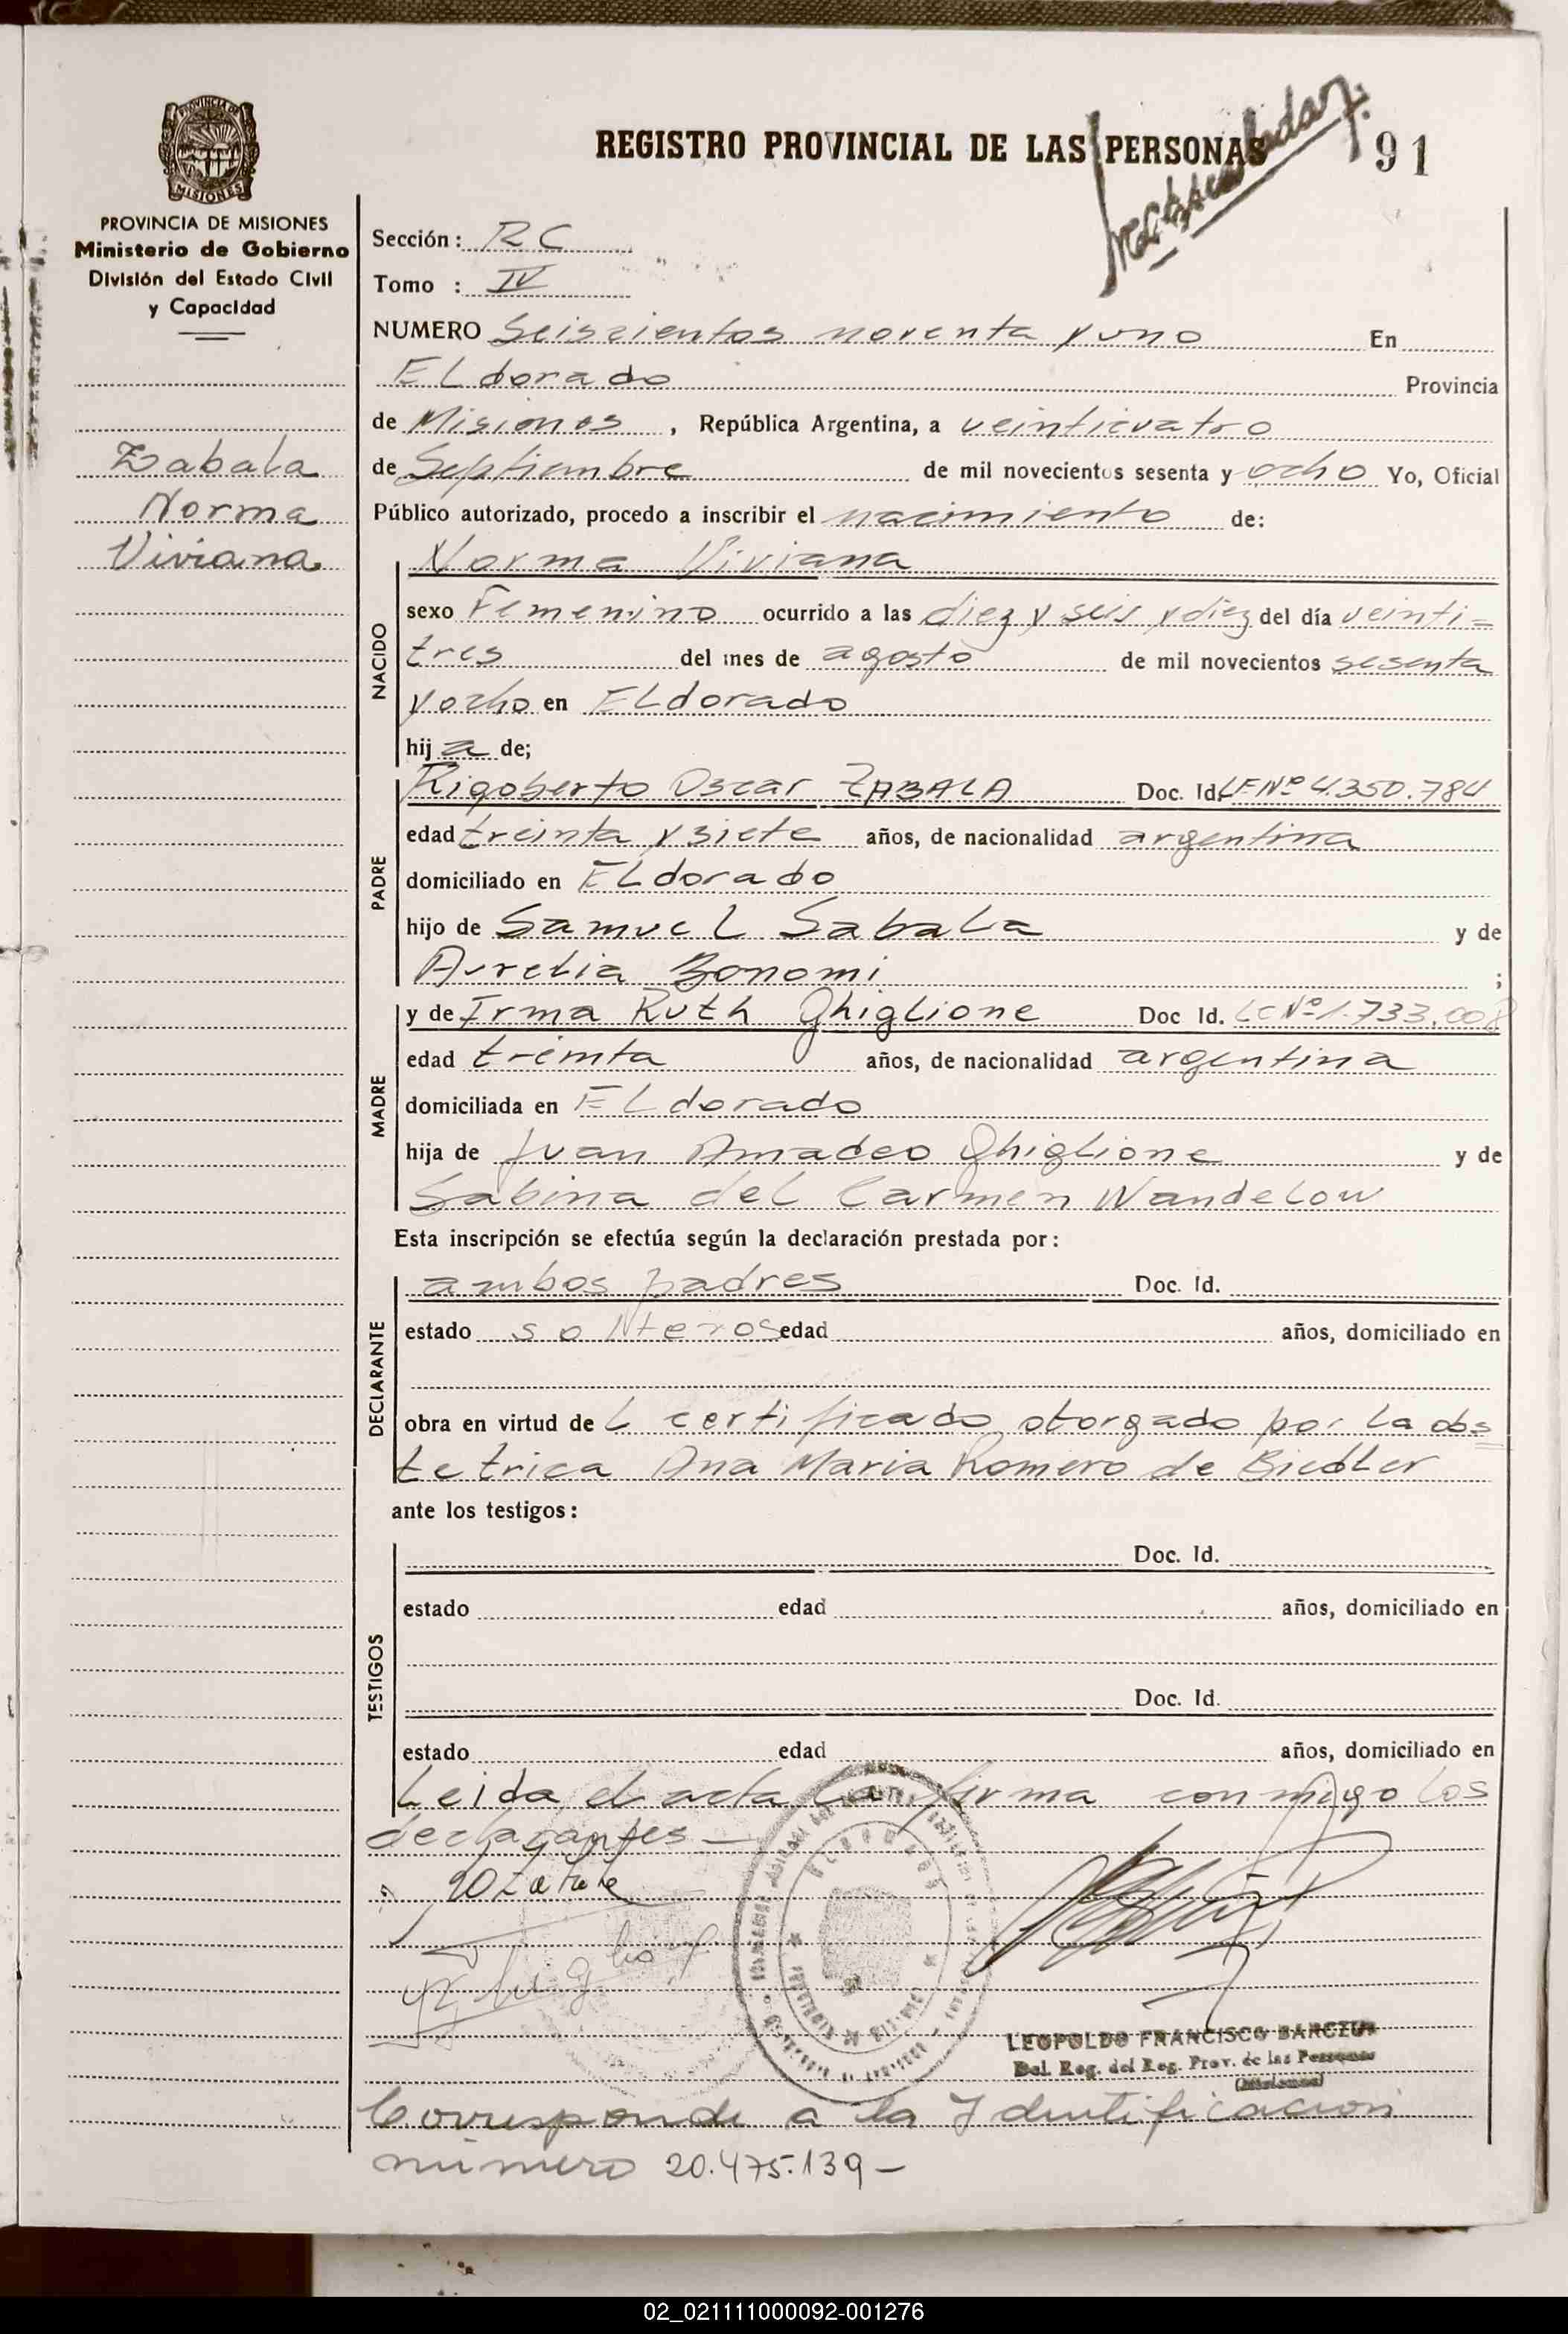 REGISTRO PROVINCIAL DE LAS PERSONAS
91
PROVINCIA DE MISIONES
Ministerio de Gobierno
División del Estado Civil
y Capacidad
Zabala
Norma
Viviana
Sección: RC
Tomo : IV
NUMERO Seiscientos noventa y uno En
ELdorado Provincia
de Misiones, República Argentina, a veinticuatro
de Septiembre de mil novecientos sesenta y ocho Yo, Oficial
Público autorizado, procedo a inscribir el nacimiento de:
NACIDO
Norma Viviana
sexo Femenino ocurrido a las diez y seis y diez del día veinti=
tres del mes de agosto de mil novecientos sesenta
y ocho en ELdorado
hij a de;
PADRE
Rigoberto Oscar ZABALA Doc. Id. LE Nº 4.350.784
edad treinta y siete años, de nacionalidad argentina
domiciliado en ELdorado
hijo de Samuel Sabala y de
Aurelia Bonomi ;
MADRE
y de Irma Ruth Ghiglione Doc Id. LC Nº 1.733.008
edad treinta años, de nacionalidad argentina
domiciliada en ELdorado
hija de Juan Amadeo Ghiglione y de
Sabina del Carmen Wandelow
Esta inscripción se efectúa según la declaración prestada por:
DECLARANTE
ambos padres Doc. Id.
estado solteros edad años, domiciliado en
obra en virtud de L certificado otorgado por la obs=
tetrica Ana Maria Romero de Biedler
ante los testigos:
TESTIGOS
Doc. Id.
estado edad años, domiciliado en
Doc. Id.
estado edad años, domiciliado en
Leida el acta la firma conmigo los
declarantes —
ELDORADO
LEOPOLDO FRANCISCO BARCZUK
Del. Reg. del Reg. Prov. de las Personas
(Misiones)
Corresponde a la Identificacion
número 20.475.139 —
02_021111000092-001276